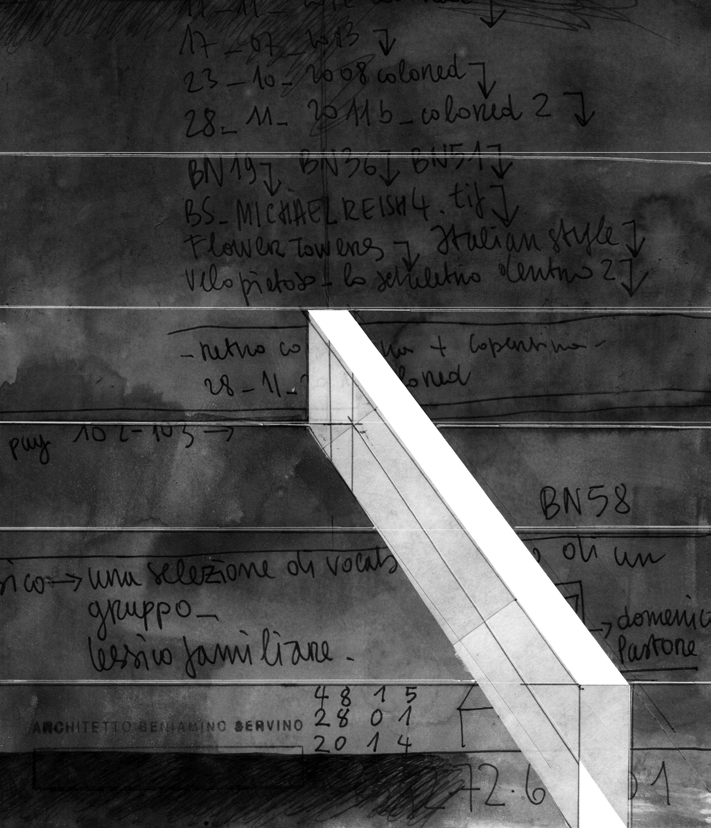 17_07_2013
23_10_2008 colored
28_11_2011b_colored 2
BN19 BN36 BN51
BS_MICHAELREISH4.tif
Flower Towers Italian style
Velo pietoso - lo scheletro dentro 2
- retro co + copertina -
28-11-
pag 102-103 →
BN58
→ una selezione di vocab di un
gruppo_
lessico famigliare.
→ domenico
Pastore
48 1 5
28 0 1
20 1 4
ARCHITETTO BENIAMINO SERVINO
72.6 01